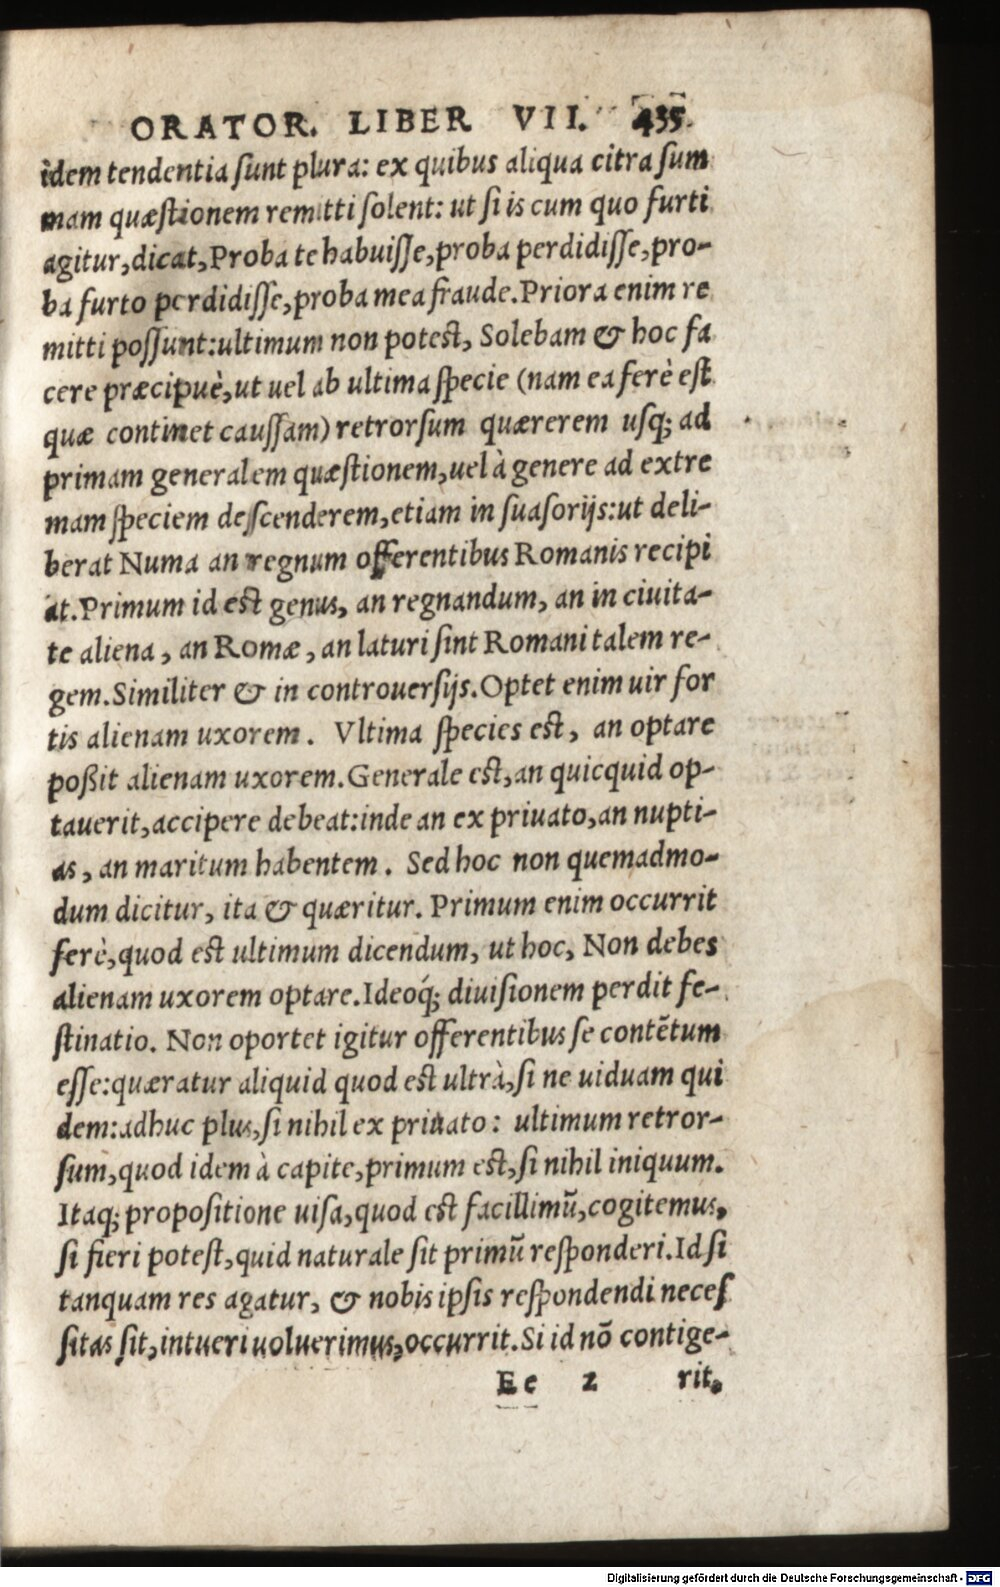 ORATOR. LIBER VII. 435.
idem tendentia ſunt plura: ex quibus aliqua citra ſum
mam quæſtionem remitti ſolent: ut ſi is cum quo furti
agitur,dicat,Proba te habuiſſe,proba perdidiſſe,pro-
ba furto perdidiſſe,proba mea fraude.Priora enim re
mitti poſſunt:ultimum non poteſt, Solebam & hoc fa
cere præcipuè,ut uel ab ultima ſpecie (nam ea ferè eſt
quæ continet cauſſam) retrorſum quærerem uſq; ad
primam generalem quæſtionem,uel à genere ad extre
mam ſpeciem deſcenderem,etiam in ſuaſorijs:ut deli-
berat Numa an regnum offerentibus Romanis recipi
at.Primum id eſt genus, an regnandum, an in ciuita-
te aliena, an Romæ, an laturi ſint Romani talem re-
gem.Similiter & in controuerſijs.Optet enim uir for
tis alienam uxorem. Vltima ſpecies eſt, an optare
poßit alienam uxorem.Generale eſt,an quicquid op-
tauerit,accipere debeat:inde an ex priuato,an nupti-
as, an maritum habentem. Sed hoc non quemadmo-
dum dicitur, ita & quæritur. Primum enim occurrit
ferè,quod eſt ultimum dicendum, ut hoc, Non debes
alienam uxorem optare.Ideoq́; diuiſionem perdit fe-
ſtinatio. Non oportet igitur offerentibus ſe contētum
eſſe:quæratur aliquid quod eſt ultrà,ſi ne uiduam qui
dem:adhuc plus,ſi nihil ex priuato: ultimum retror-
ſum,quod idem à capite,primum eſt,ſi nihil iniquum.
Itaq; propoſitione uiſa,quod eſt facillimū,cogitemus,
ſi fieri poteſt,quid naturale ſit primū reſponderi.Id ſi
tanquam res agatur, & nobis ipſis reſpondendi neceſ
ſitas ſit,intueri uoluerimus,occurrit.Si id nō contige-
Ee 2 rit.
Digitalisierung gefördert durch die Deutsche Forschungsgemeinschaft - DFG